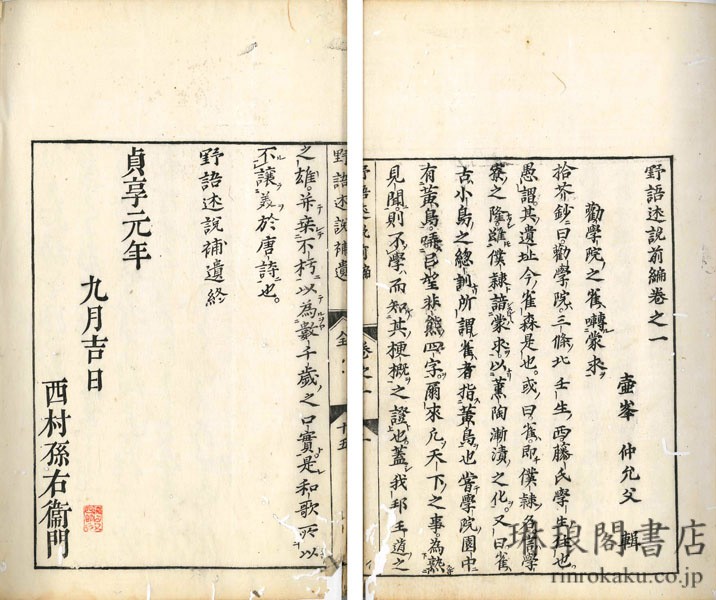 野語述説前編卷之一
壺峯 仲允父 輯
勸學院之雀囀蒙求
拾芥鈔曰勸學院三條北壬生西藤氏學生住也
愚謂其遺址今雀森是也或曰雀即僕隷名謂學
寮之隆雖僕隷諳蒙求以薫陶漸漬之化又曰雀
古小鳥之總訓所謂雀者指黄鳥也甞學院園中
有黄鳥囀呂望非熊四字爾來凡天下之事為熟
見聞則不學而知其梗概之證也蓋我邦王道之
野語述説前編 卷之一 一
野語述説補遺 十五
之雄并桒不朽以為數千歳之口實是和歌所以
不讓美於唐詩也
野語述説補遺終
貞享元年
九月吉日
西村孫右衞門
琳琅閣書店
rinrokaku.co.jp